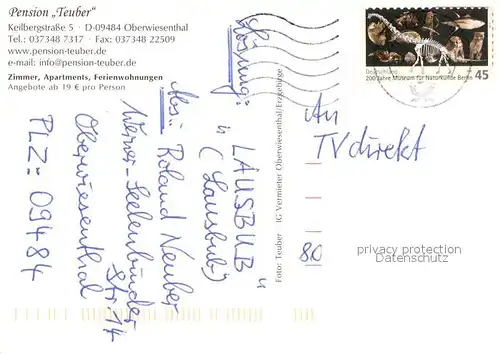 Pension „Teuber“
Keilbergstraße 5 · D-09484 Oberwiesenthal
Tel.: 037348 7317 · Fax: 037348 22509
www.pension-teuber.de
e-mail: info@pension-teuber.de
Zimmer, Apartments, Ferienwohnungen
Angebote ab 19 € pro Person
Lösung:
"LAUSBUB"
(Lausbub)
Abs.: Roland Neuber
Werner-Seelenbinder
Str. 14
Oberwiesenthal
PLZ: 09484
Foto: Teuber IG Vermieter Oberwiesenthal/Erzgebirge
Deutschland
200 Jahre Museum für Naturkunde Berlin
45
An
TV direkt
80
privacy protection
Datenschutz